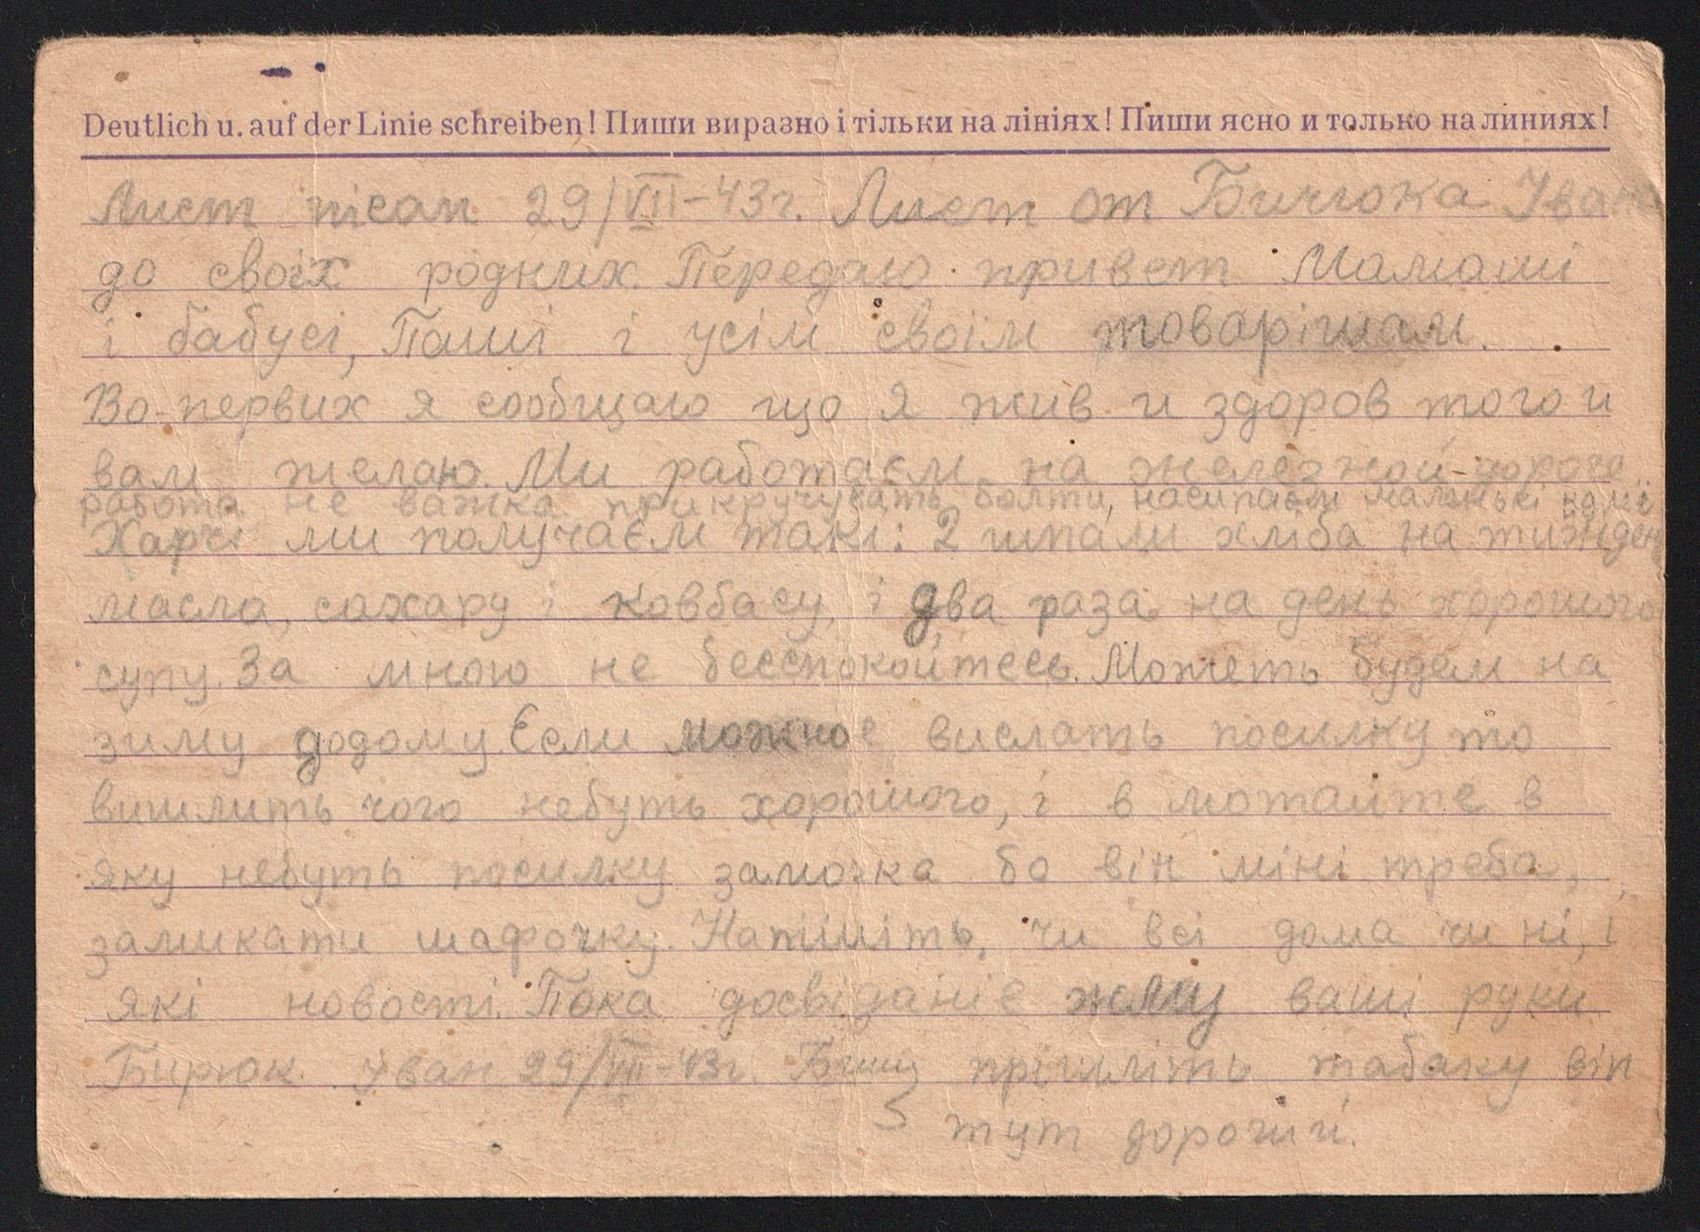 Deutlich u. auf der Linie schreiben! Пиши виразно і тільки на лініях! Пиши ясно и только на линиях!
Лист пісан 29/VII-43г. Лист от Івана
до своіх родних. Передаю привет Мамаші
і бабусі, Паші і усім своїм товарішам.
Во-первих я сообщаю що я жив и здоров того и
вам желаю. Ми работаєм на железной дороге
работа не важка прикручувать болти, насипаєм маленькі
Харчі ми получаєм такі: 2 хліба на тиждень
масла, сахару і ковбасу, і два раза на день хорошого
супу. За мною не беєспокойтесь. Можеть будем на
зиму додому. Єсли можно вислать посилку то
вишлить чого небуть хорошого, і в мотайте в
яку небуть посилку замочка бо він міні треба,
замикати шафочку. Напішіть, чи всі дома чи ні, і
які новості. Пока досвіданіє жму ваші руки
Іван 29/VII-43г. прішліть табаку він
тут дорогий.